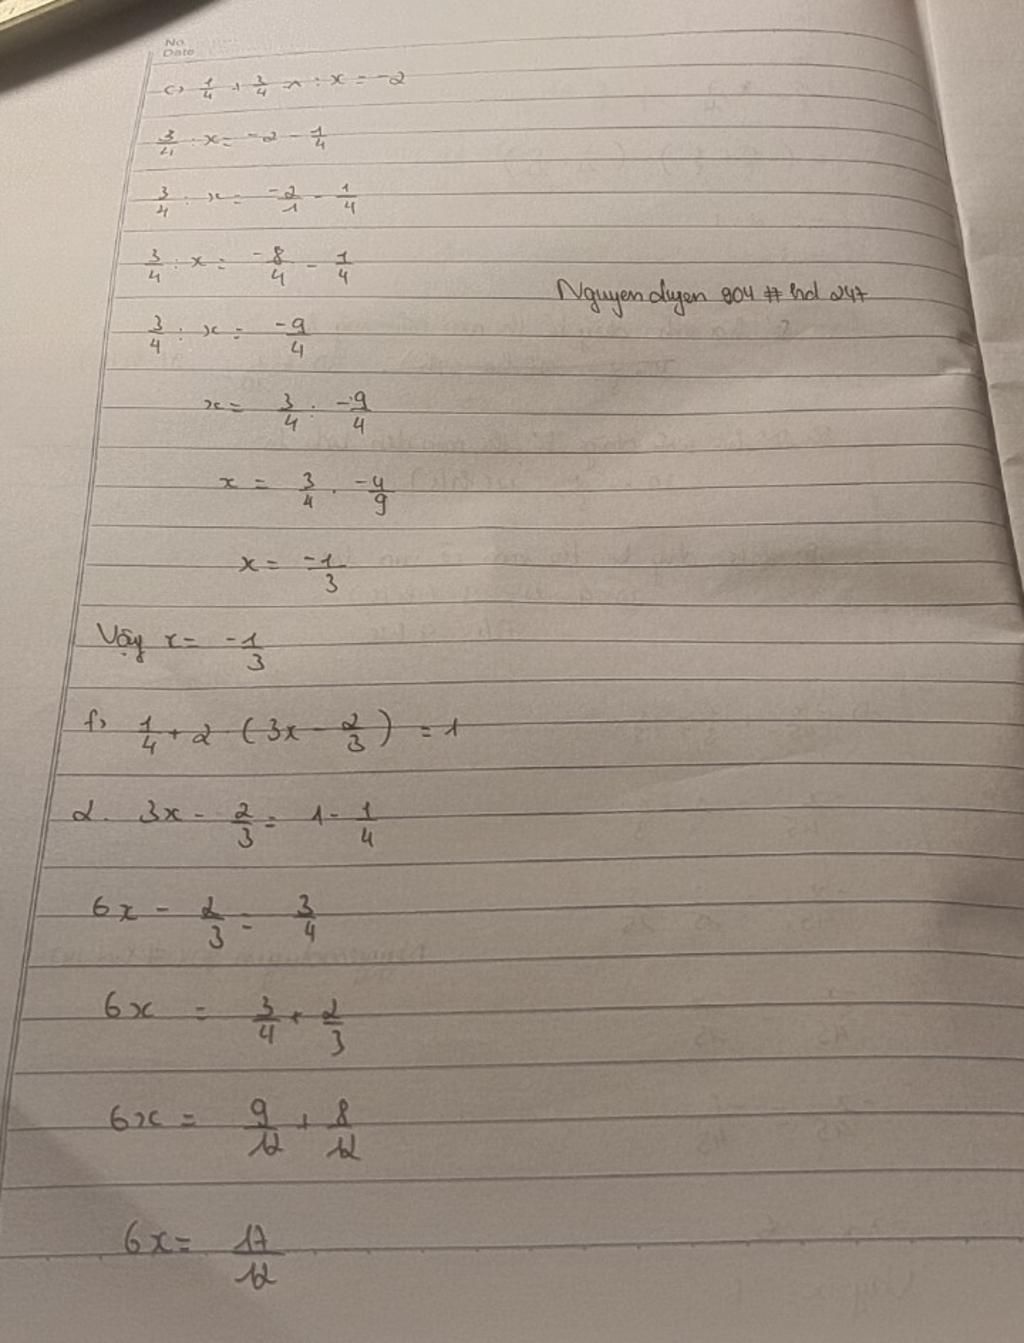 No.
Date
c) 1/4 + 3/4 : x = -2
3/4 : x = -2 - 1/4
3/4 : x = -2/1 - 1/4
3/4 : x = -8/4 - 1/4
Nguyenduyen 904 # hd 247
3/4 : x = -9/4
x = 3/4 : -9/4
x = 3/4 . -4/9
x = -1/3
Vậy x = -1/3
f) 1/4 + 2 (3x - 2/3) = 1
2. 3x - 2/3 = 1 - 1/4
6x - 2/3 = 3/4
6x = 3/4 + 2/3
6x = 9/12 + 8/12
6x = 17/12